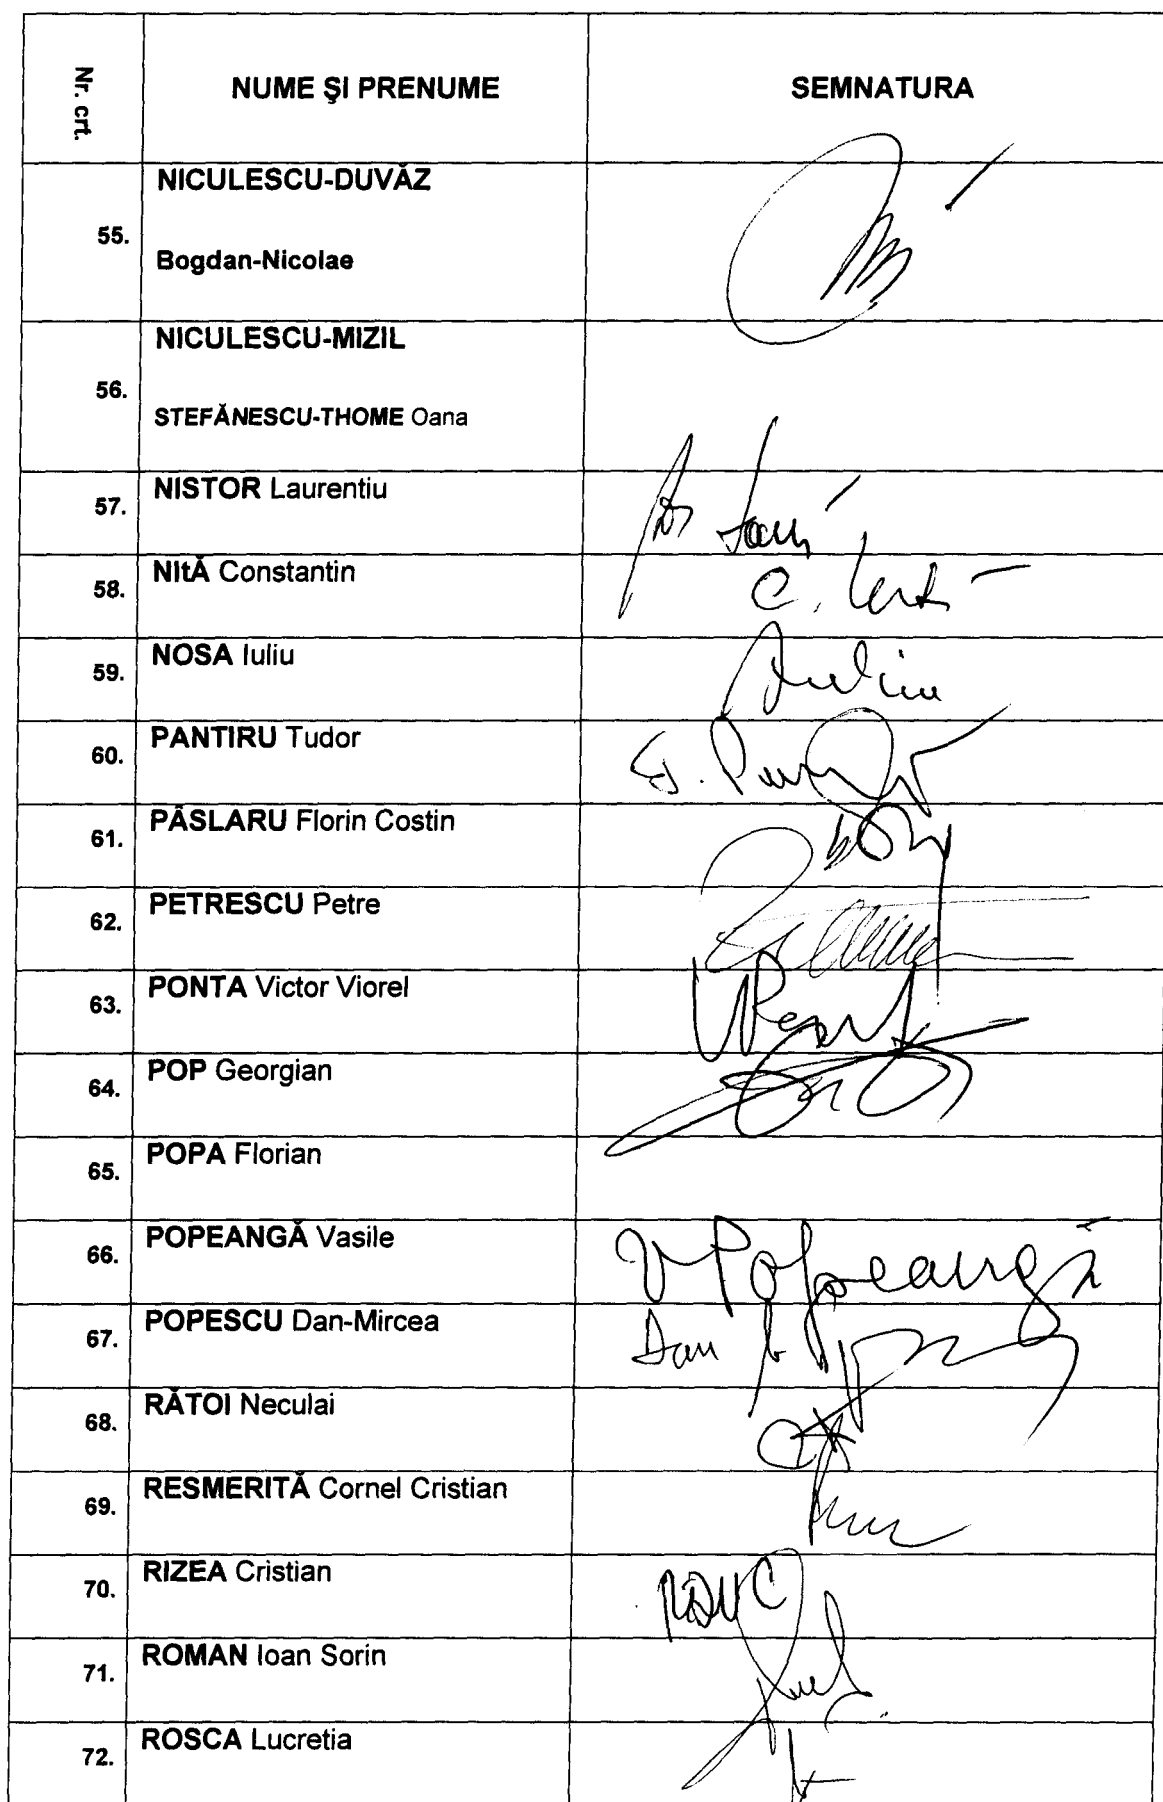 Nr. crt. NUME ŞI PRENUME SEMNATURA
NICULESCU-DUVĂZ
55.
Bogdan-Nicolae
NICULESCU-MIZIL
56.
STEFĂNESCU-THOME Oana
57. NISTOR Laurentiu
58. NItĂ Constantin
59. NOSA Iuliu
Iuliu
60. PANTIRU Tudor
61. PÂSLARU Florin Costin
62. PETRESCU Petre
63. PONTA Victor Viorel
64. POP Georgian
65. POPA Florian
66. POPEANGĂ Vasile
V Popeangă
67. POPESCU Dan-Mircea
Dan
68. RĂTOI Neculai
69. RESMERITĂ Cornel Cristian
70. RIZEA Cristian
71. ROMAN Ioan Sorin
72. ROSCA Lucretia